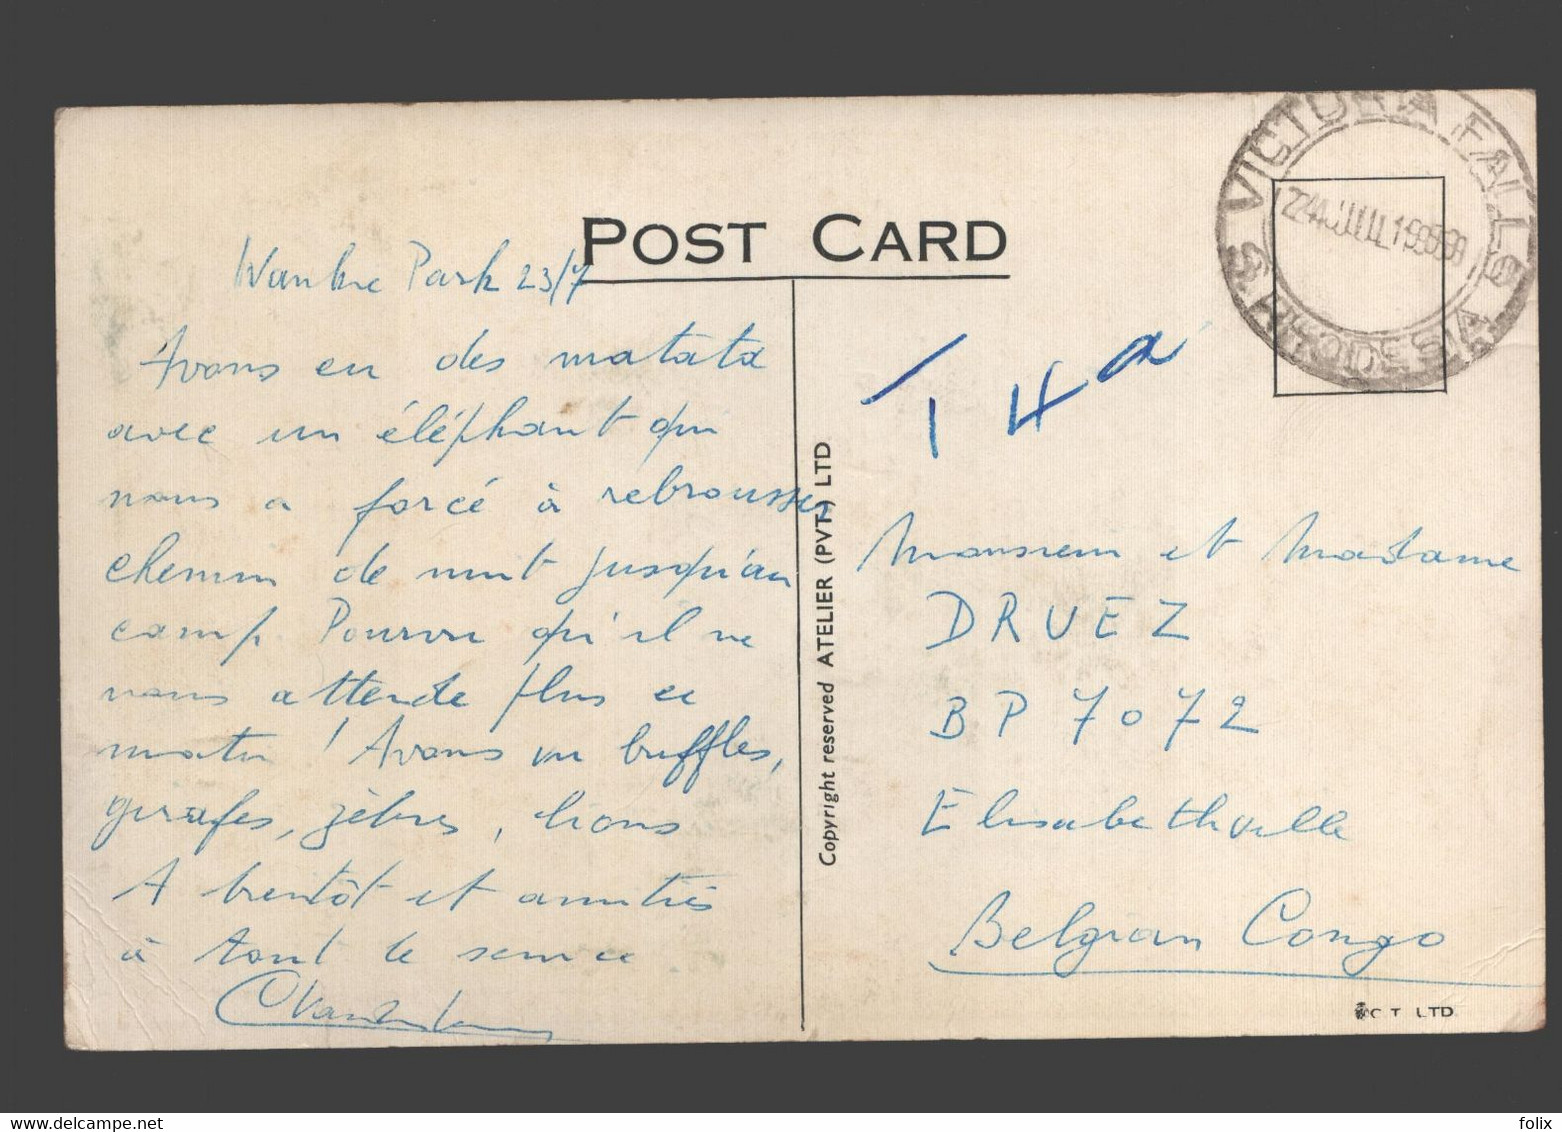 POST CARD
VICTORIA FALLS
S. RHODESIA
Wankie Park 23/7
Avons eu des matata
avec un éléphant qui
nous a forcé à rebrousser
chemin de nuit jusqu'au
camp. Pourvu qu'il ne
nous attende plus ce
matin ! Avons vu buffles,
girafes, zèbres, lions
A bientôt et amitiés
à tout le service
T 4 d
Monsieur et Madame
DRUEZ
BP 7072
Elisabethville
Belgian Congo
Copyright reserved ATELIER (PVT.) LTD
C.T. LTD.
folix